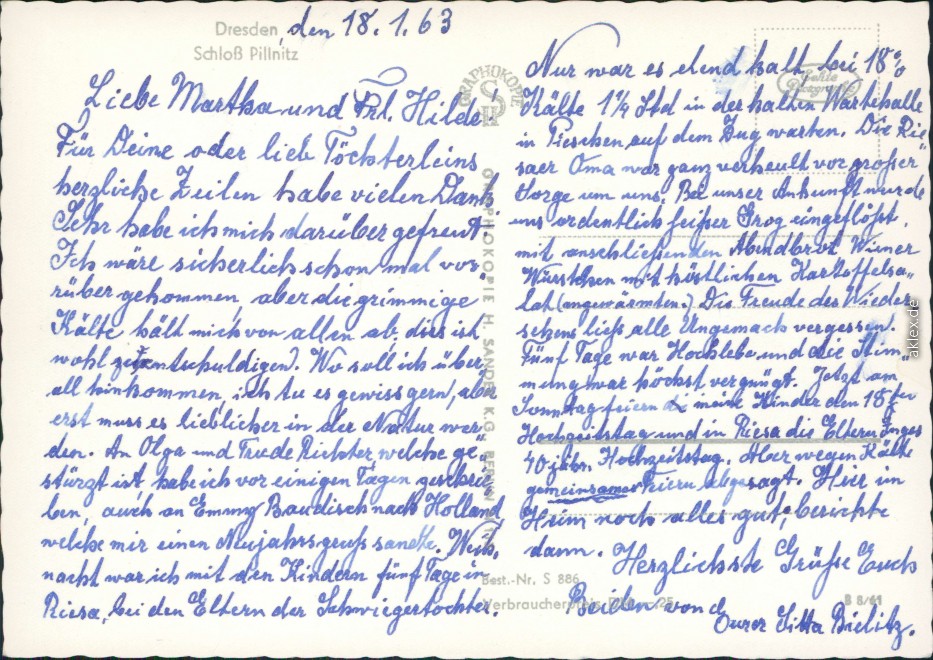 Dresden, den 18.1.63
Schloß Pillnitz
Liebe Martha und Frl. Hilde!
Für Deine oder lieb Töchterleins
herzliche Zeilen habe vielen Dank
Sehr habe ich mich darüber gefreut.
Ich wäre sicherlich schon mal vor-
rüber gekommen, aber die grimmige
Kälte hält mich von allen ab, dies ist
wohl zu entschuldigen). Wo soll ich über-
all hinkommen, ich tu es gewiss gern, aber
erst muss es lieblicher in der Natur wer-
den. An Olga und Trude Richter, welche ge-
stürzt ist, habe ich vor einigen Tagen geschrie-
ben, auch an Emmy Baudisch nach Holland,
welche mir einen Neujahrsgruss sandte. Weih-
nacht war ich mit den Kindern fünf Tage in
Riesa, bei den Eltern der Schwiegertochter.
Nur war es elend kalt, bei 18°
Kälte 1¼ Std in der kalten Wartehalle
in Pieschen auf dem Zug warten. Die Rie-
saer Oma war ganz verheult vor großer
Sorge um uns. Bei unser Ankunft wurde
uns ordentlich heißer Grog eingeflößt,
mit anschließenden Abendbrot Wiener
Würstchen mit köstlichen Kartoffelsa-
lat (angewärmten.) Die Freude des Wieder-
sehens ließ alle Ungemach vergessen.
Fünf Tage war Hochlebe und die Stim-
mung war höchst vergnügt. Jetzt am
Sonntag feiern die meine Kinder den 18
Hochzeitstag und in Riesa die Eltern
40 jähr. Hochzeitstag. Aber wegen Kälte
gemeinsames Feiern abgesagt. Hier im
Heim noch alles gut, berichte
dann. Herzlichste Grüße Euch
Beiden von d
Eurer Sitta Bielitz.
GRAPHOKOPIE
GRAPHOKOPIE H. SANDER K.G. BERLIN
Echte Photographie
Best.-Nr. S 886
Verbraucherpreis
B 8/61
aklex.de